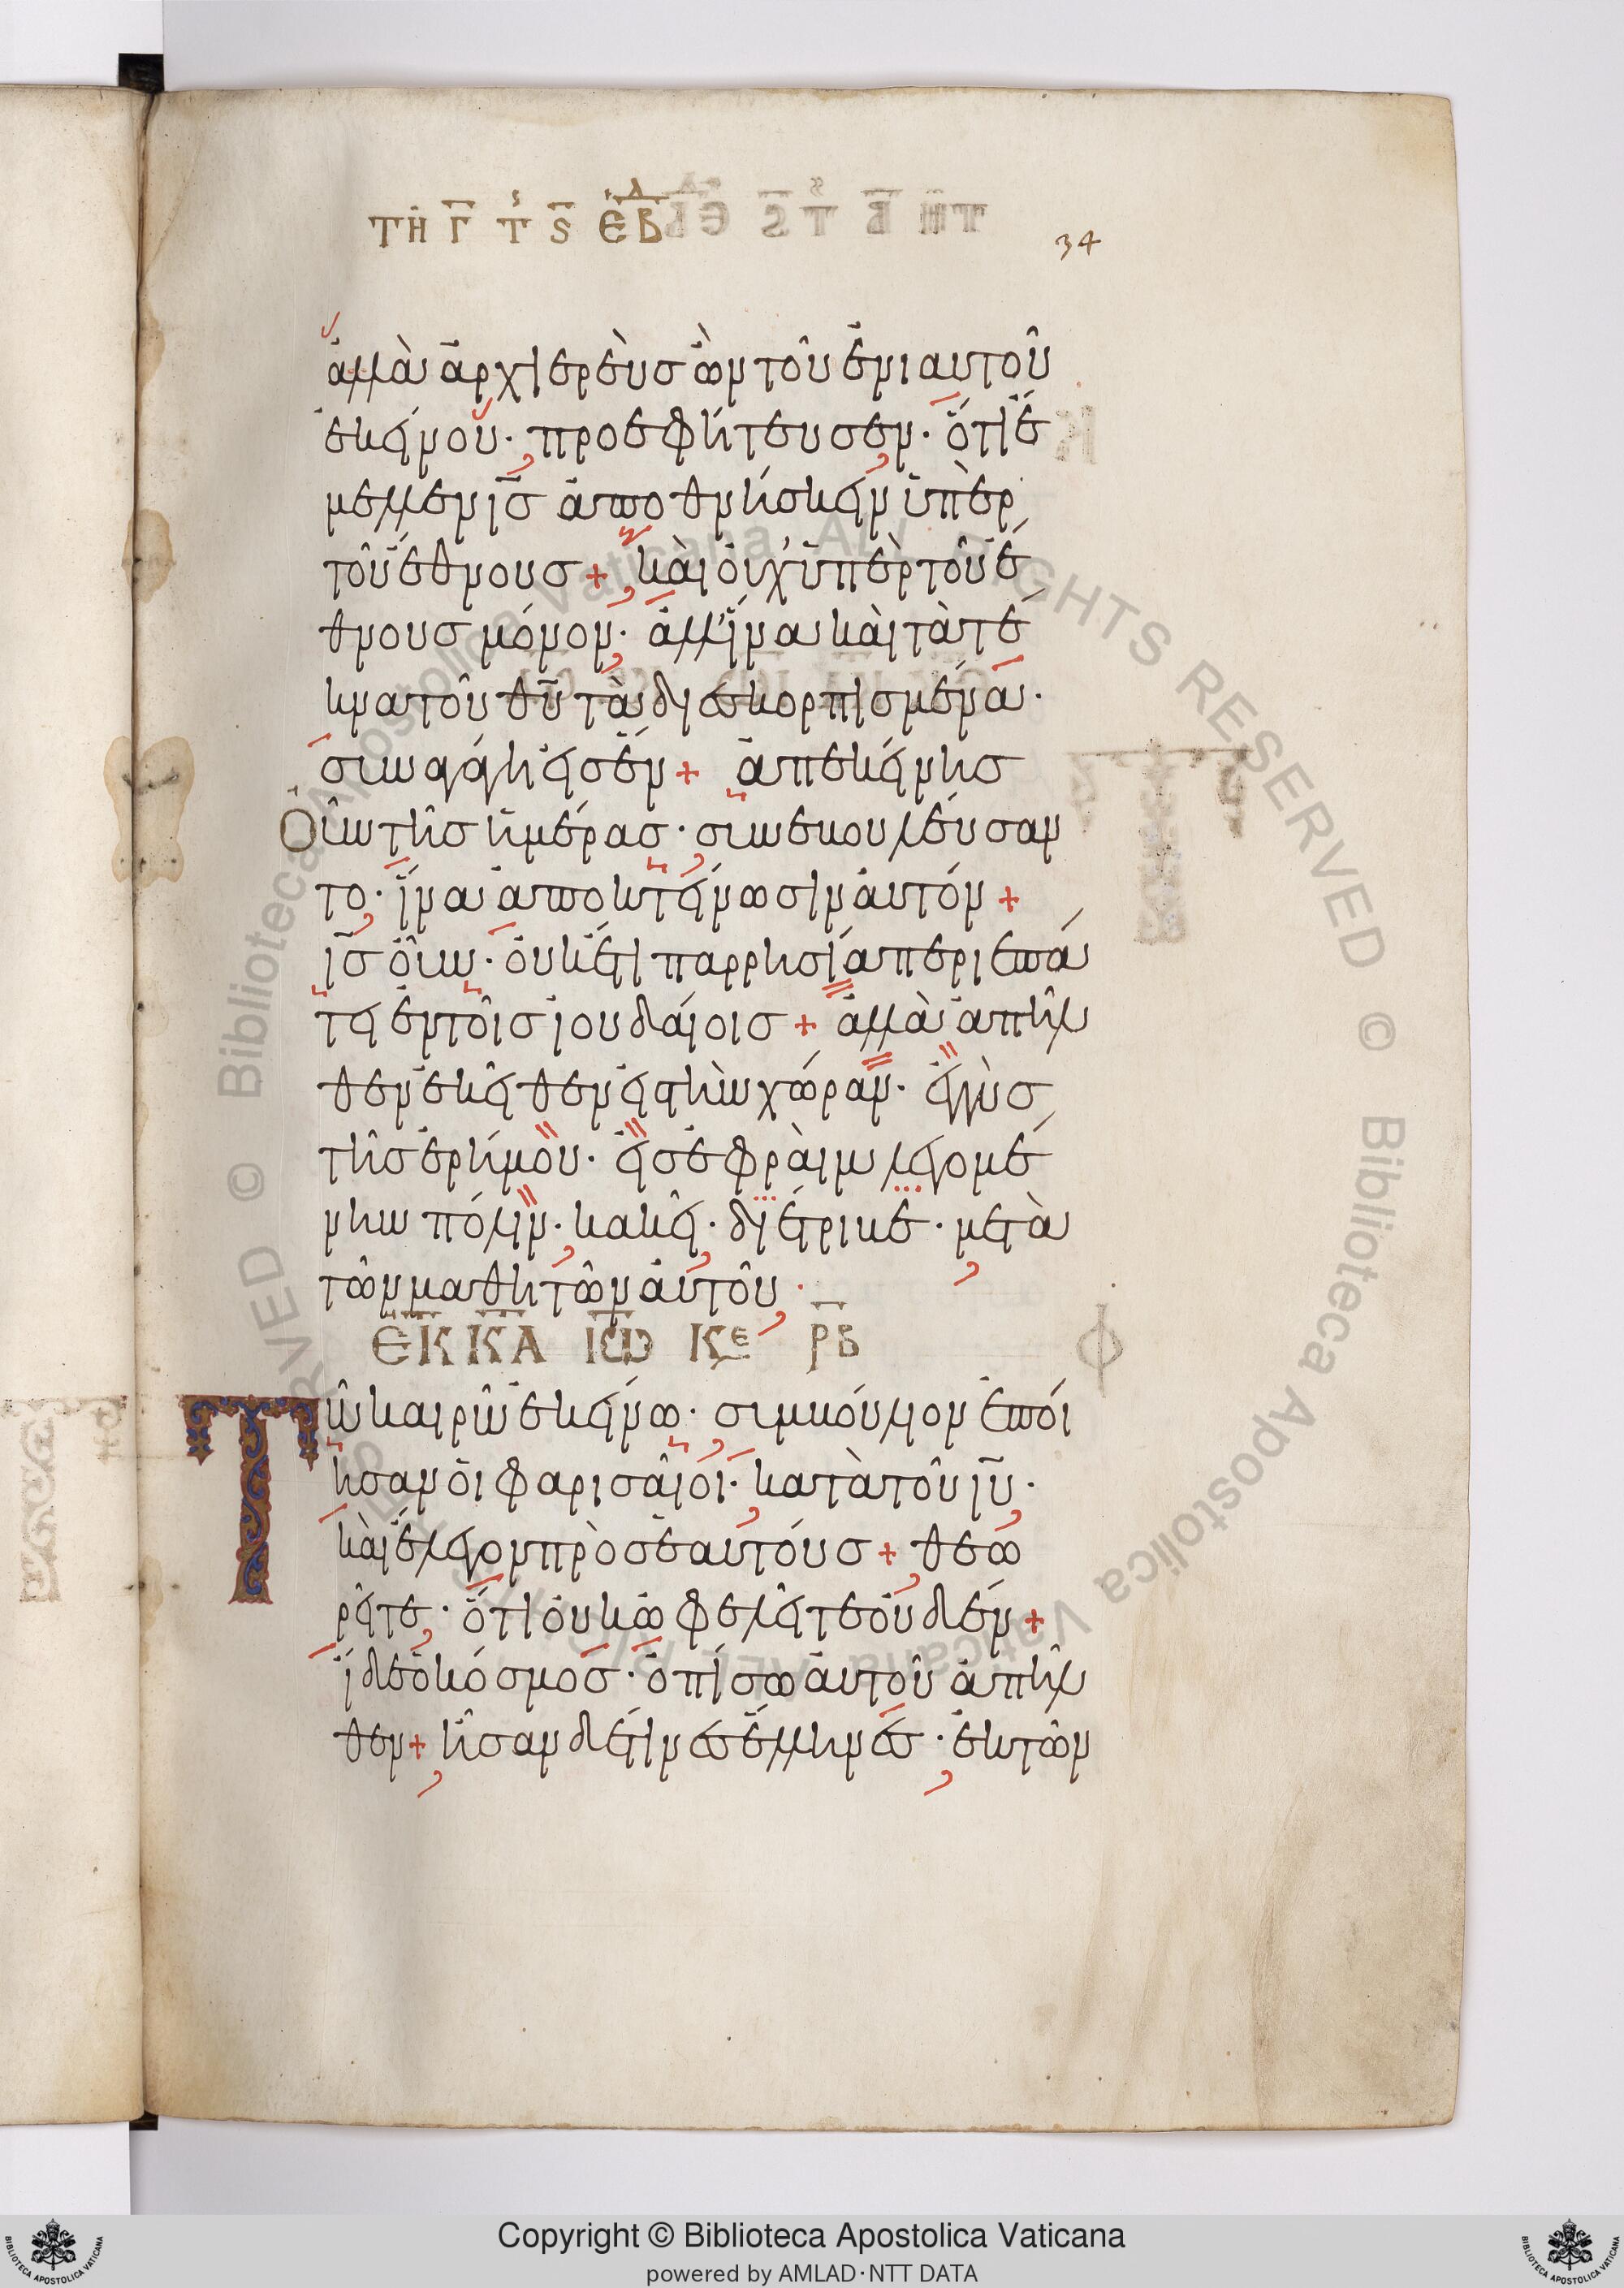 ΤΗ Γ Τ Ϛ ΕΒΔ
34
ἀλλὰ ἀρχιερεὺς ὢν τοῦ ἐνιαυτοῦ
ἐκείνου· προεφήτευσεν· ὅτι ἔ
μελλεν ις ἀποθνήσκειν ὑπὲρ
τοῦ ἔθνους + καὶ οὐχ ὑπὲρ τοῦ ἔ
θνους μόνον· ἀλλ' ἵνα καὶ τὰ τέ
κνα τοῦ θυ τὰ διεσκορπισμένα·
συναγάγη εἰς ἕν + ἀπ' ἐκείνης
Οὖν τῆς ἡμέρας· συνεβουλεύσαν
το· ἵνα ἀποκτείνωσιν αὐτόν +
ις οὖν· οὐκέτι παρρησία περιεπά
τει ἐν τοῖς ἰουδαίοις + ἀλλὰ ἀπῆλ
θεν ἐκεῖθεν εἰς τὴν χώραν· ἐγγὺς
τῆς ἐρήμου· εἰς ἐφραὶμ λεγομέ
νην πόλιν· κακεῖ· διέτριβε· μετὰ
τῶν μαθητῶν αὐτοῦ·
ΕΚ ΚΑ ΙΩ ΚΕ ΡΒ
Τῶ καιρῶ ἐκείνω· συμβούλιον ἐποί
ησαν οἱ φαρισαῖοι· κατὰ τοῦ ιυ·
καὶ ἔλεγον πρὸς ἑαυτούς + θεω
ρεῖτε· ὅτι οὐκ ὠφελεῖτε οὐδέν +
ἴδε ὁ κόσμος· ὀπίσω αὐτοῦ ἀπῆλ
θεν + ἦσαν δέ τινες ἕλληνες· ἐκ τῶν
Copyright © Biblioteca Apostolica Vaticana
powered by AMLAD·NTT DATA